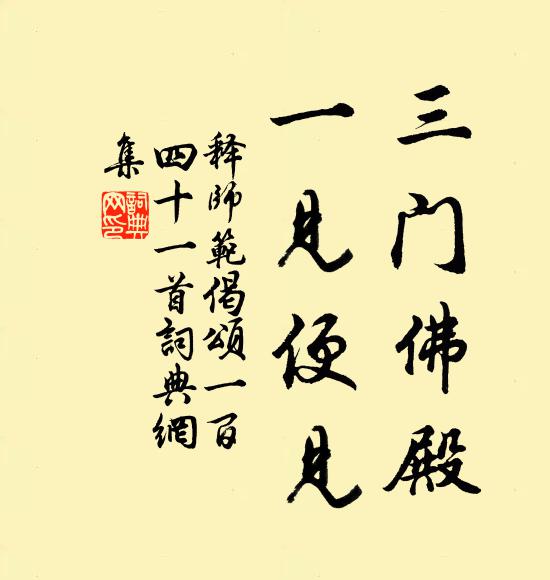 三门佛殿
一见便见
释师範偈頌一百
四十一首詞典網
集
詞典
网印